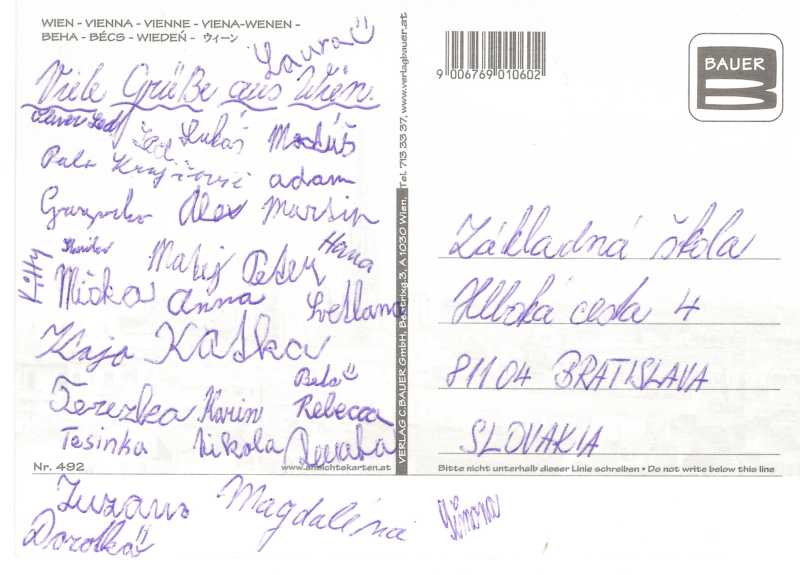 WIEN - VIENNA - VIENNE - VIENA-WENEN -
BEHA - BÉCS - WIEDEŃ - ウィーン
Laura
Viele Grüße aus Wien.
Lukáš Matúš
adam
Alex Martin
Kitty Matej Peter Hana
Miška Anna Svetlana
Kaja Katka
Bela
Terezka Karin Rebecca
Tesinka Nikola
Nr. 492
www.ansichtskarten.at
Zuzana Magdaléna Simona
Dorotka
VERLAG C.BAUER GmbH, Bastrixg.3, A 1030 Wien, Tel. 713 33 37, www.verlagbauer.at
9 006769 010602
BAUER
B
Základná škola
Hlboká cesta 4
81104 BRATISLAVA
SLOVAKIA
Bitte nicht unterhalb dieser Linie schreiben • Do not write below this line